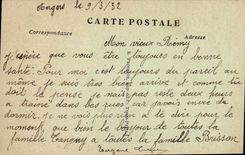 Angers le 9/3/32
CARTE POSTALE
Correspondance
Adresse
Mon vieux Rémy
J'espère que vous être toujours en bonne
santé. Pour moi c'est toujours du pareil au
même je suis très bien arrivé et comme tu
doit le penser je avais pas resté deux heures
a trainer dans les rues car javais envie de
dormir. je ne vois plus rien a te dire pour le
moment que bien le bonjour de toutes la
famille Tangny a toutes la famille Buisson